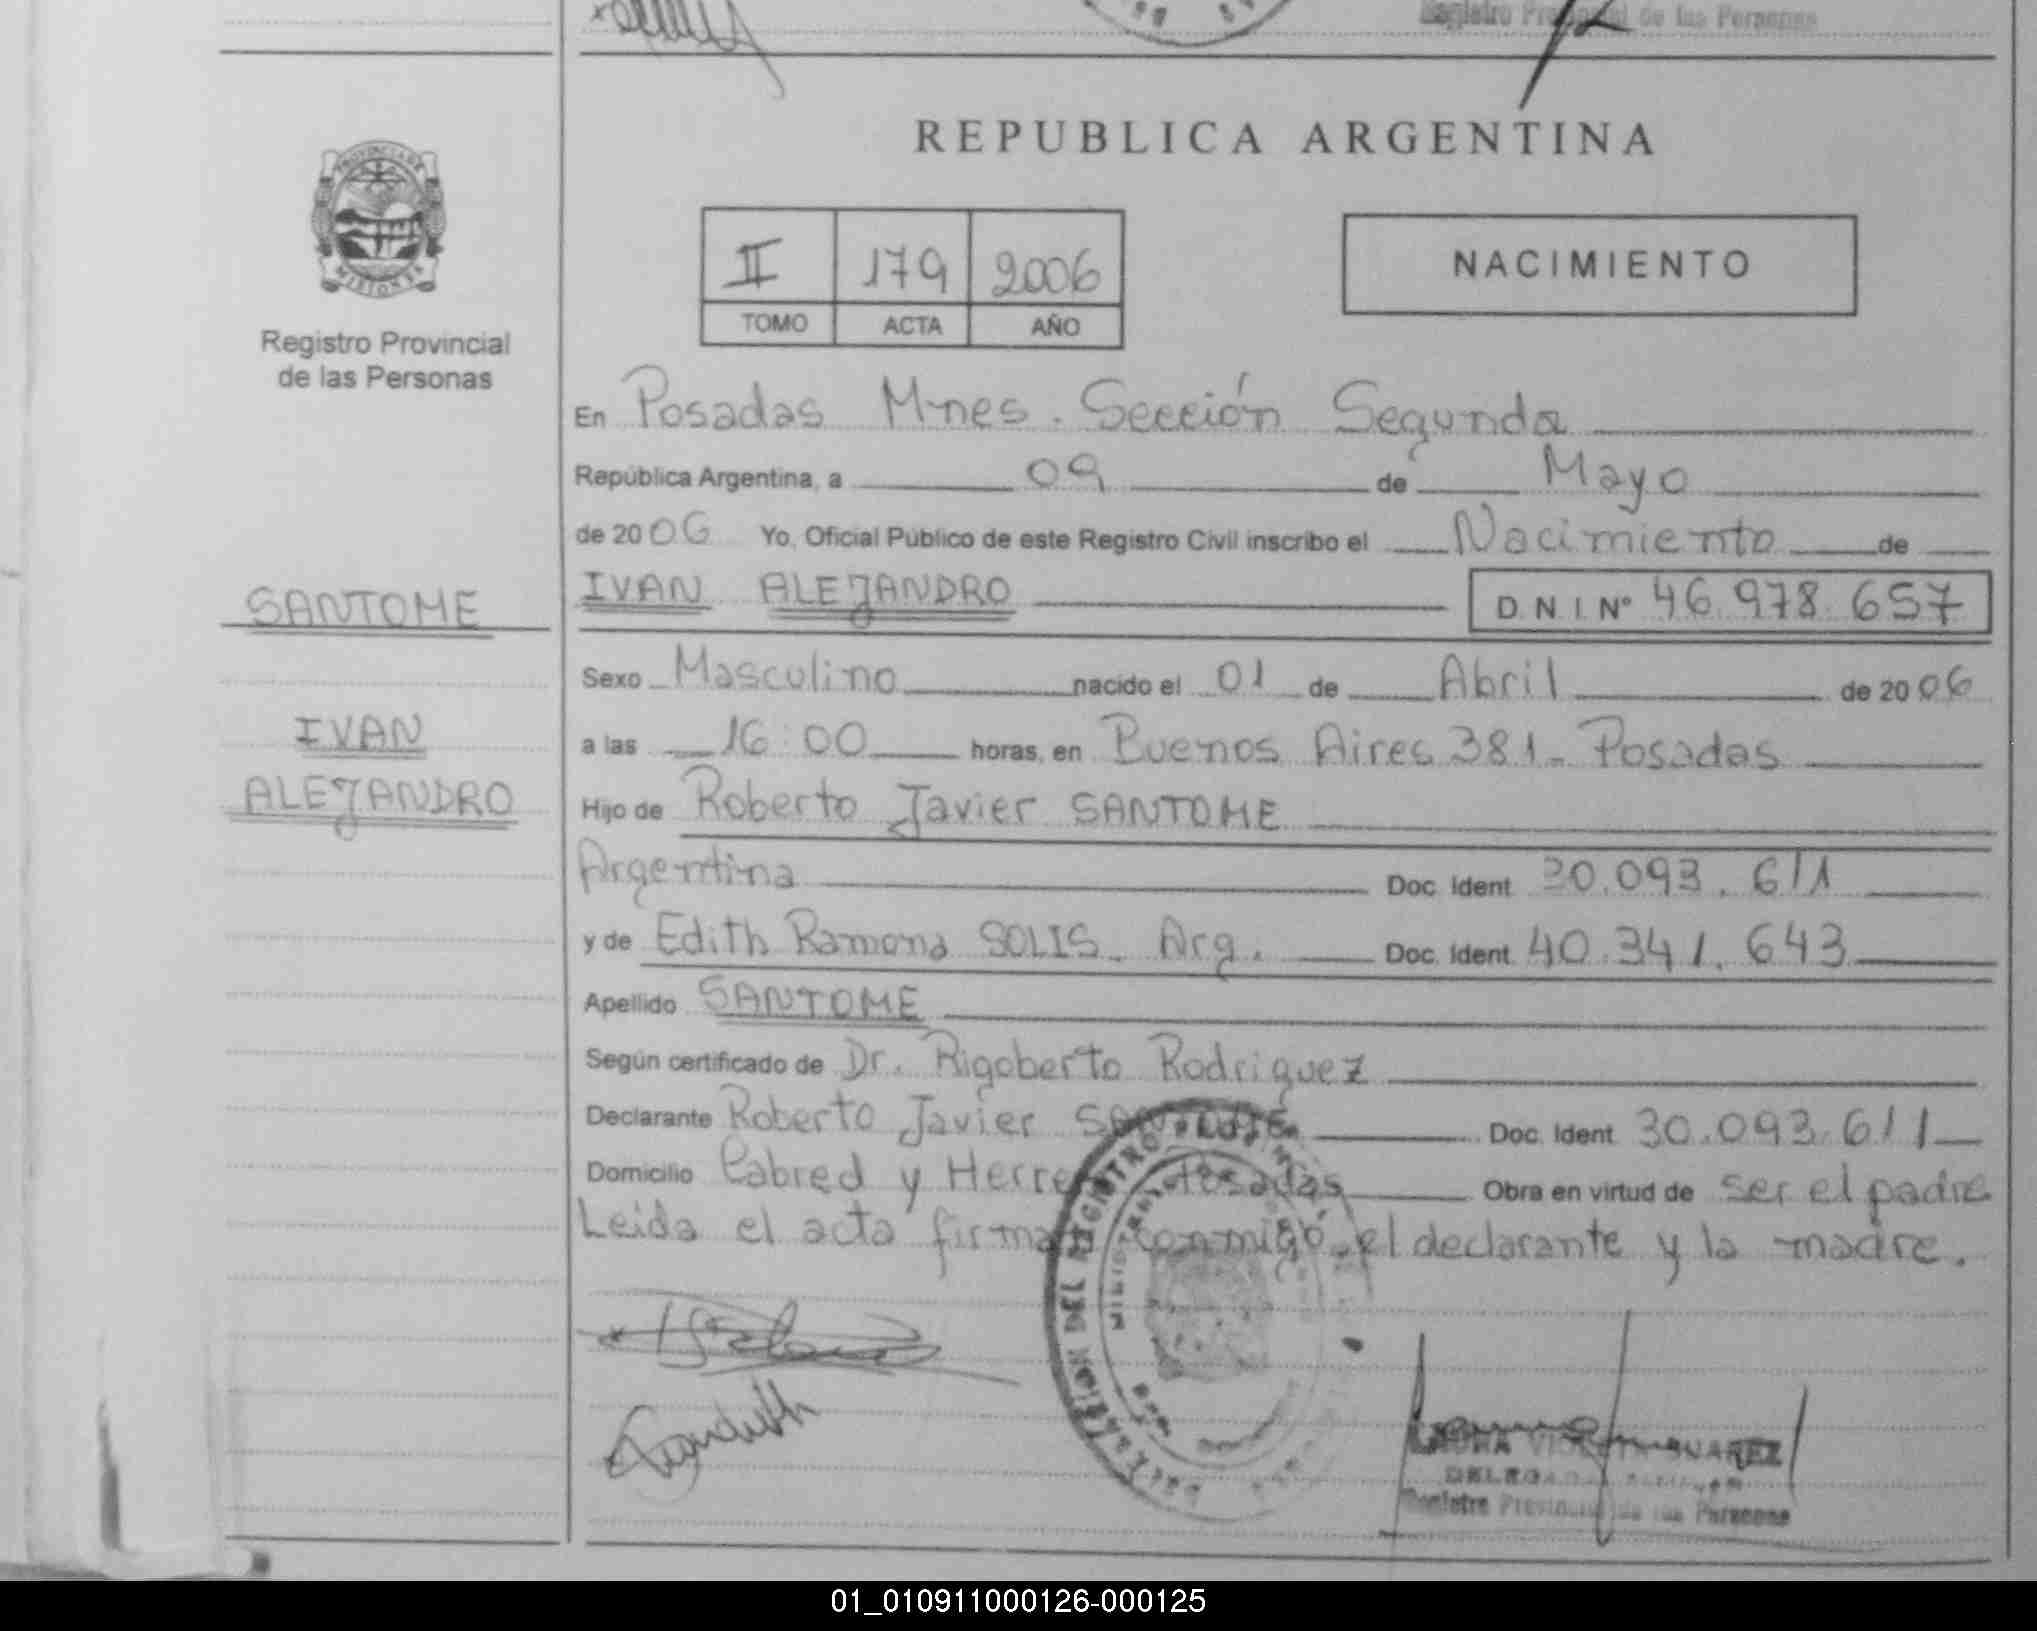 Registro Provincial de las Personas
PROVINCIA DE
MISIONES
Registro Provincial
de las Personas
REPUBLICA ARGENTINA
II 179 2006
TOMO ACTA AÑO
NACIMIENTO
En Posadas Mnes. Sección Segunda
República Argentina, a 09 de Mayo
de 2006 Yo, Oficial Público de este Registro Civil inscribo el Nacimiento de
SANTOME
IVAN ALEJANDRO D.N.I. Nº 46.978.657
Sexo Masculino nacido el 01 de Abril de 2006
IVAN
a las 16:00 horas, en Buenos Aires 381- Posadas
ALEJANDRO
Hijo de Roberto Javier SANTOME
Argentina Doc. Ident. 30.093.611
y de Edith Ramona SOLIS. Arg. Doc. Ident. 40.341.643
Apellido SANTOME
Según certificado de Dr. Rigoberto Rodriguez
Declarante Roberto Javier SANTOME Doc. Ident. 30.093.611
Domicilio Cabred y Posadas Obra en virtud de ser el padre
Leida el acta firman conmigo, el declarante y la madre.
DEL REGISTRO
SUAREZ
Registro Provincial de las Personas
01_010911000126-000125